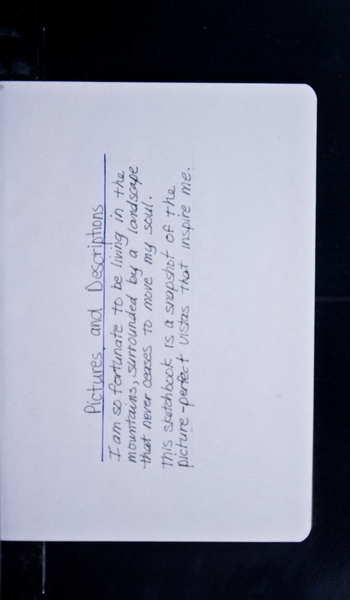 Pictures and Descriptions
I am so fortunate to be living in the
mountains, surrounded by a landscape
that never ceases to move my soul.
This sketchbook is a snapshot of the
picture-perfect vistas that inspire me.